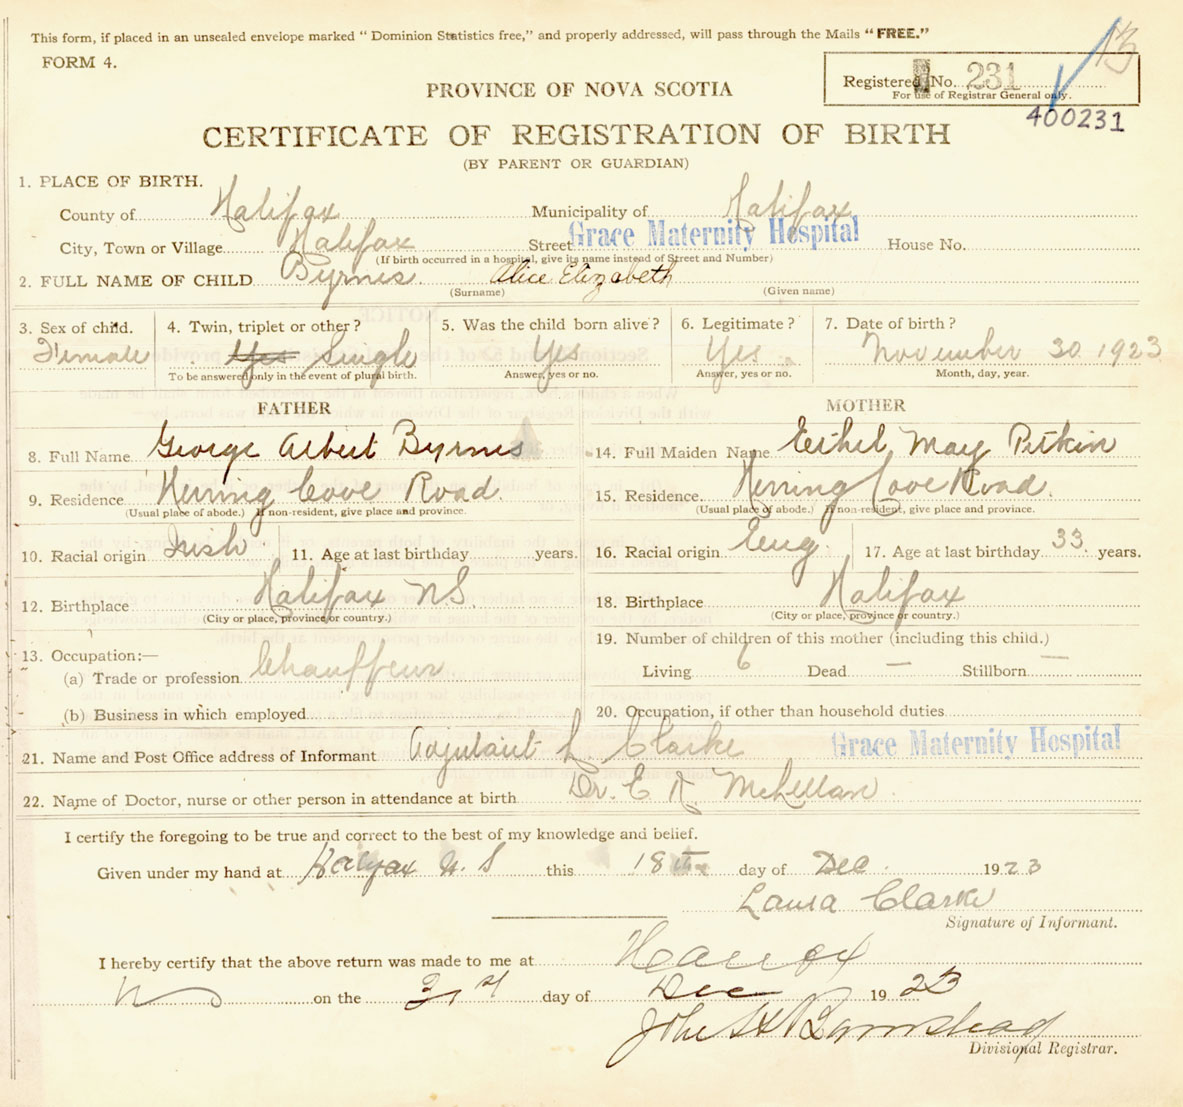 This form, if placed in an unsealed envelope marked “ Dominion Statistics free,” and properly addressed, will pass through the Mails “FREE.”
13
FORM 4.
Registered No. 231
For use of Registrar General only.
PROVINCE OF NOVA SCOTIA
400231
CERTIFICATE OF REGISTRATION OF BIRTH
(BY PARENT OR GUARDIAN)
1. PLACE OF BIRTH.
County of Halifax Municipality of Halifax
City, Town or Village Halifax Street Grace Maternity Hospital House No.
(If birth occurred in a hospital, give its name instead of Street and Number)
2. FULL NAME OF CHILD Byrnes Alice Elizabeth
(Surname) (Given name)
3. Sex of child. 4. Twin, triplet or other ? 5. Was the child born alive ? 6. Legitimate ? 7. Date of birth ?
Female Yes Single Yes Yes November 30 1923
To be answered only in the event of plural birth. Answer, yes or no. Answer, yes or no. Month, day, year.
FATHER MOTHER
8. Full Name George Albert Byrnes 14. Full Maiden Name Ethel May Pitkin
9. Residence Herring Cove Road 15. Residence. Herring Cove Road.
(Usual place of abode.) If non-resident, give place and province. (Usual place of abode.) If non-resident, give place and province.
10. Racial origin Irish 11. Age at last birthday years. 16. Racial origin Eng. 17. Age at last birthday 33 years.
12. Birthplace Halifax N.S. 18. Birthplace Halifax
(City or place, province or country.) (City or place, province or country.)
19. Number of children of this mother (including this child.)
13. Occupation:—
(a) Trade or profession Chauffeur Living 6 Dead — Stillborn —
(b) Business in which employed 20. Occupation, if other than household duties
21. Name and Post Office address of Informant Adjutant L Clarke Grace Maternity Hospital
22. Name of Doctor, nurse or other person in attendance at birth Dr. E K McLellan
I certify the foregoing to be true and correct to the best of my knowledge and belief.
Given under my hand at Halifax N. S this 18th day of Dec. 1923
Laura Clarke
Signature of Informant.
I hereby certify that the above return was made to me at Halifax
NS on the 31st day of Dec 1923
John H Barnstead
Divisional Registrar.